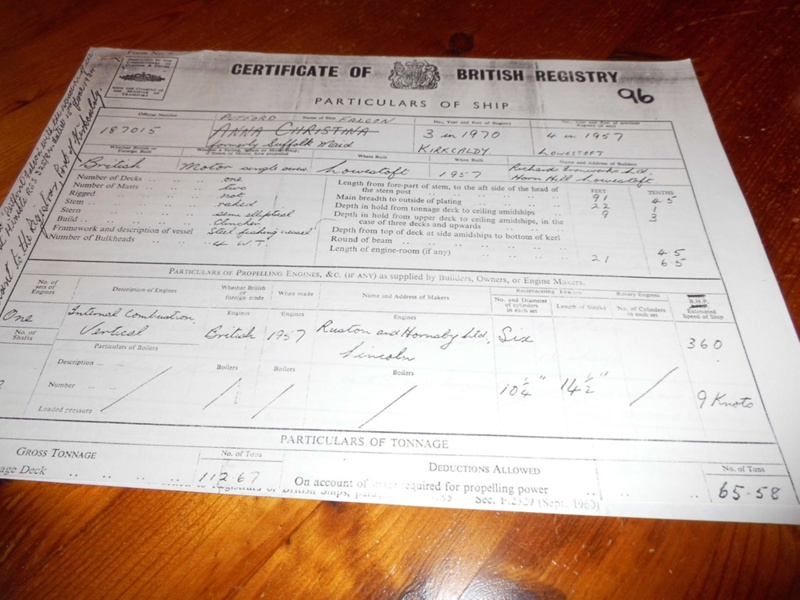 CERTIFICATE OF BRITISH REGISTRY
96
PARTICULARS OF SHIP
Official Number Name of Ship No., Year and Port of Registry
PUTFORD FALCON
187015 ANNA CHRISTINA 3 in 1970 4 in 1957
formerly Suffolk Maid KIRKCALDY LOWESTOFT
Whether British or Foreign Built When Built Name and Address of Builders
British Motor single screw Lowestoft 1957 Richards Ironworks Ltd. Horn Hill Lowestoft
Number of Decks one
Number of Masts two
Rigged not
Stem raked
Stern semi elliptical
Build clincher
Framework and description of vessel Steel fishing vessel
Number of Bulkheads 4 W.T.
FEET TENTHS
Length from fore-part of stem, to the aft side of the head of the stern post 91 45
Main breadth to outside of plating 22 1
Depth in hold from tonnage deck to ceiling amidships 9 3
Depth in hold from upper deck to ceiling amidships, in the case of three decks and upwards
Depth from top of deck at side amidships to bottom of keel
Round of beam 45
Length of engine-room (if any) 21 65
PARTICULARS OF PROPELLING ENGINES, &C. (IF ANY) as supplied by Builders, Owners, or Engine Makers.
No. of sets of Engines Description of Engines Whether British or foreign made When made Name and Address of Makers Reciprocating Engines Rotary Engines B.H.P. Estimated Speed of Ship
No. and Diameter of cylinders in each set Length of Stroke No. of Cylinders in each set
Engines Engines Engines
One Internal Combustion Vertical British 1957 Ruston and Hornsby Ltd. Lincoln Six 360
No. of Shafts Particulars of Boilers Boilers Boilers Boilers
Description
Number 10¼" 14½" 9 Knots
Loaded pressure
PARTICULARS OF TONNAGE
GROSS TONNAGE No. of Tons DEDUCTIONS ALLOWED No. of Tons
Deck 112.67 On account of required for propelling power 65.58
(Sept. 1960)